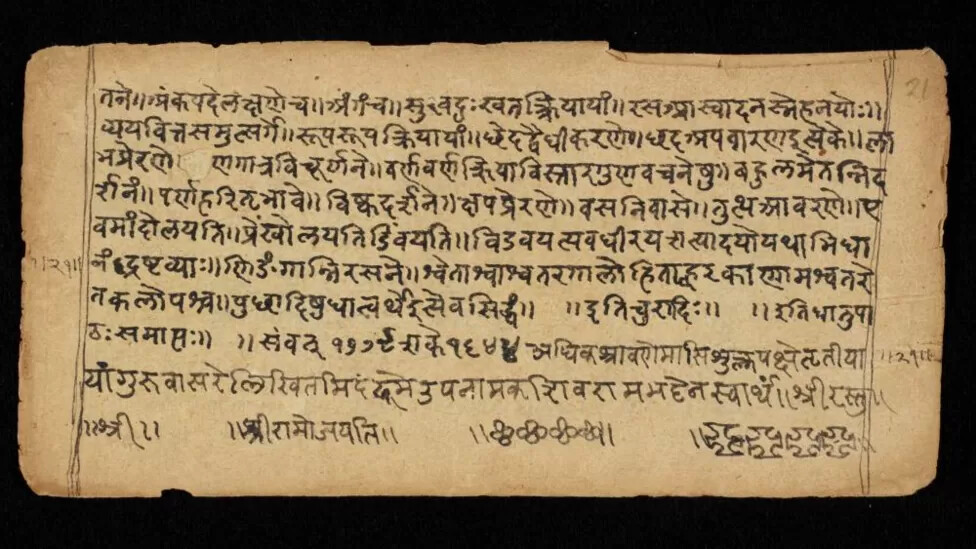 तने॥अंकपदेलक्षणेच॥अंगंच॥सुखदुःखतत्क्रियायां॥रसआस्वादनस्नेहनयोः॥
व्ययवित्तसमुत्सर्गे॥रूपरूपक्रियायां॥छेदद्वैधीकरणे॥छदअपवारणइत्येके॥ला
भप्रेरणे॥ णगात्रविचूर्णने॥वर्णवर्णक्रियाविस्तारगुणवचनेषु॥बहुलमेतन्निद
र्शनं॥पर्णहरितभावे॥विष्कदर्शने॥क्षपप्रेरणे॥वसनिवासे॥तुत्थआवरणे॥ए
वमांदोलयति॥प्रेंखोलयति विडंबयति॥ अवधीरय यथाभिधा
नं द्रष्टव्याः॥णिङंगान्निरसने॥श्वेताश्वाश्वतरगालोडिताह्वरकाणामश्वतरे
तकलोपश्च॥पुछादिषुधात्वर्थेइत्येवसिद्धं॥ ॥इतिचुरादिः॥ ॥इतिधातुपा
ठःसमाप्तः॥ ॥संवत् १७७९ शके१६४४ अधिकश्रावणेमासिशुक्लपक्षेतृतीया
यांगुरुवासरेलिखितमिदं उपनामक रामभट्टेनस्वार्थं॥श्रीरस्तु॥
॥श्री॥ ॥श्रीरामोजयति॥ ॥छ॥छ॥छ॥छ॥
॥२१॥
॥२१॥
21